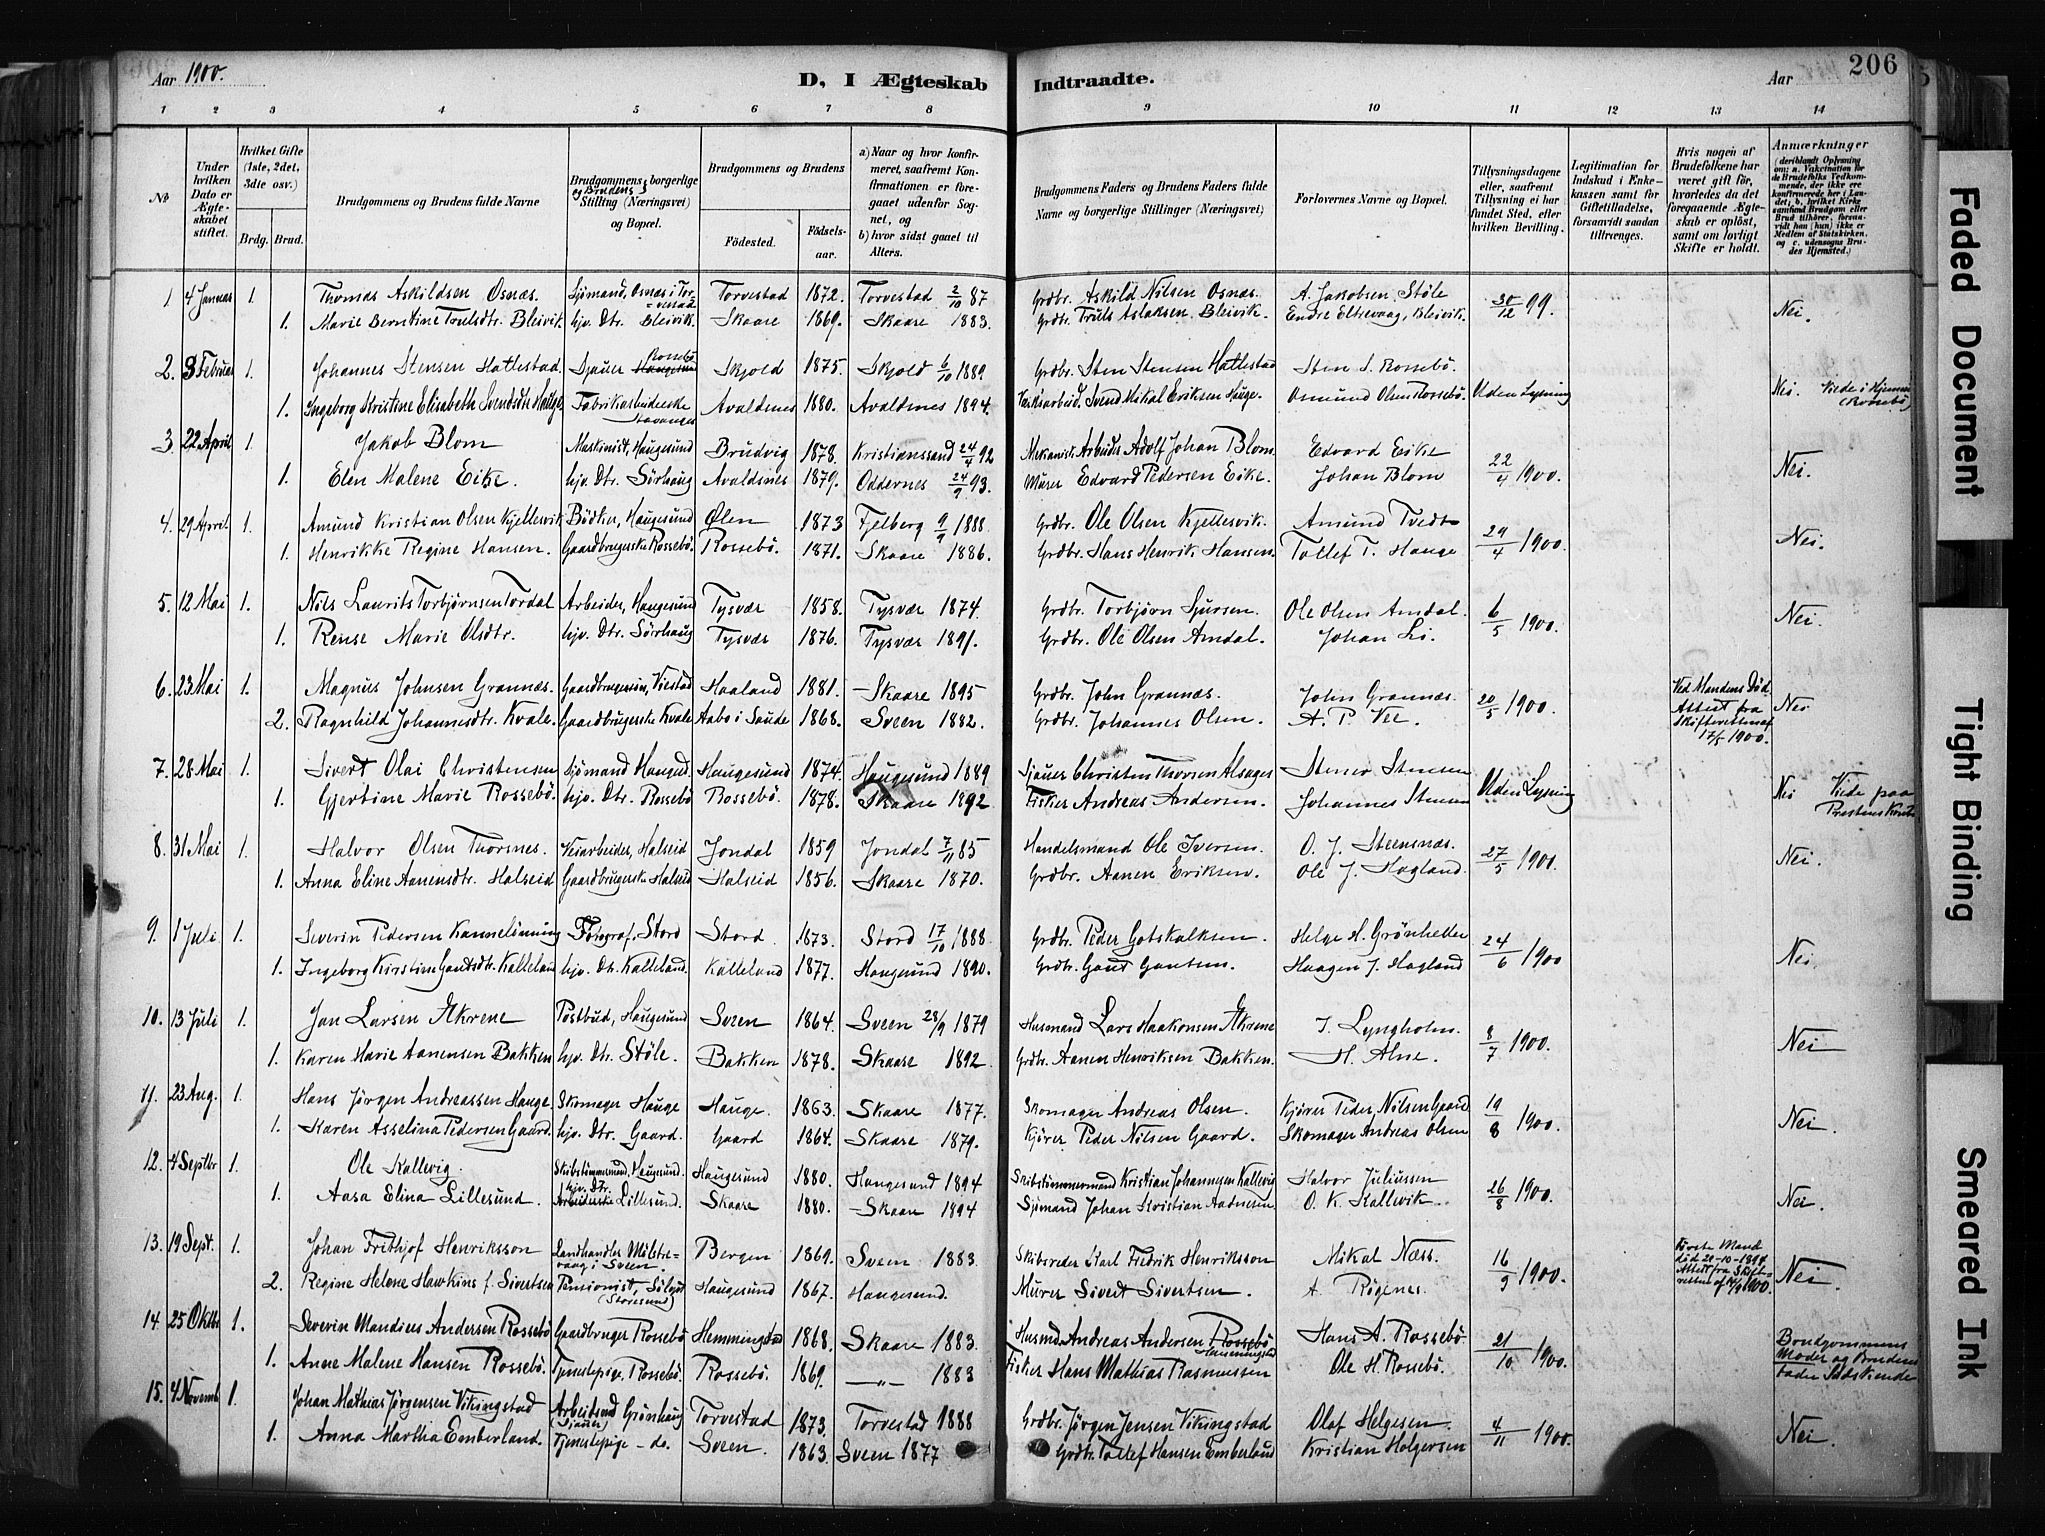 Aar 1900. D, I Ægteskab Indtraadte. Aar 206
1 2 3 4 5 6 7 8 9 10 11 12 13 14
No
Under hvilken Dato er Ægteskabet stiftet.
Hvilket Gifte (1ste, 2det, 3die osv.)
Brdg. Brud.
Brudgommens og Brudens fulde Navne
Brudgommens og Brudens borgerlige Stilling (Næringsvei) og Bopæl.
Brudgommens og Brudens
Födested. Födselsaar.
a) Naar og hvor konfirmeret, saafremt Konfirmationen er foregaaet udenfor Sognet, og
b) hvor sidst gaaet til Alters.
Brudgommens Faders og Brudens Faders fulde Navne og borgerlige Stillinger (Næringsvei)
Forlovernes Navne og Bopæl.
Tillysningsdagene eller, saafremt Tillysning ei har fundet Sted, efter hvilken Bevilling.
Legitimation for Indskud i Enkekassen samt for Giftetilladelse, forsaavidt saadan tiltrænges.
Hvis nogen af Brudefolkene har været gift för, hvorledes da det foregaaende Ægteskab er oplöst, samt om lovligt Skifte er holdt.
Anmærkninger (deriblandt Oplysning om: a. Vakcination for de Brudefolks Vedkommende, der ikke ere konfirmerede her i Landet; b. hvilket Kirkesamfund Brudgom eller Brud tilhörer, forsaavidt han (hun) ikke er Medlem af Statskirken, og c. udensogns Brudes Hjemsted.)
1 4 Januar 1. Thomas Askildsen Osnæs. Sjömand, Osnæs i Torvestad Torvestad 1872. Torvestad 2/10 87 Grdbr. Askild Nilsen Osnæs. A. Jakobsen, Støle 30/12 99. Nei.
1. Marie Berntine Trulsdtr. Bleivik. hjv. Dtr. Bleivik. Skaare 1869. Skaare 1883. Grdbr. Truls Aslaksen Bleivik. Endre Eltrevaag, Bleivik.
2. 3 Februar 1. Johannes Stensen Hatlestad Sjauer Rossebö Skjold 1875. Skjold 6/10 1889 Grdbr. Sten Stensen Hatlestad Sten S. Rossebö. Uden Lysning Nei. Viede i Hjemmet (Rossebö)
1. Ingeborg Kristine Elisabeth Svendsdtr Hauge Fabrikarbeiderske Stavanger Avaldsnes 1880. Avaldsnes 1894. Svend Mikal Eriksen Hauge. Osmund Olsen Rossebö.
3. 22 April 1. Jakob Blom Maskinist, Haugesund Brudvig 1878. Kristianssand 24/4 92 Mekanisk Arbeider Adolf Johan Blom Edvard Eike 22/4 1900. Nei.
1. Elen Malene Eike. hjv. Dtr. Sörhaug Avaldsnes 1879. Oddernes 24/9 93. Murer Edvard Pedersen Eike. Johan Blom
4. 29 April 1. Amund Kristian Olsen Kjellesvik Bödker, Haugesund Ølen 1873 Fjelberg 9/9 1888 Grdbr. Ole Olsen Kjellesvik. Amund Tvedt 29/4 1900. Nei.
1. Henrikke Regine Hansen. Gaardbrugerske Rossebö. Rossebö. 1871. Skaare 1886. Grdbr. Hans Henrik Hansen. Tollef T. Hauge
5. 12 Mai 1. Nils Laurits Torbjørnsen Tordal Arbeider, Haugesund Tysvær 1858. Tysvær 1874. Grdbr. Torbjørn Sjursen. Ole Olsen Amdal. 6/5 1900. Nei.
1. Rense Marie Olsdtr. hjv. Dtr. Sörhaug Tysvær 1876. Tysvær 1891. Grdbr. Ole Olsen Amdal. Johan Li.
6. 23 Mai 1. Magnus Johnsen Grannæs. Haaland 1881. Skaare 1895 Grdbr. John Grannæs. John Grannæs. 20/5 1900. Ved Mandens Död. Attest fra Skifteretten af 17/5 1900. Nei
2. Ragnhild Johannesdtr. Kvale. Gaardbrugerske Kvale Aabö i Saude 1868. Sveen 1882. Grdbr. Johannes Olsen. A. P. Vee.
7. 28 Mai 1. Sivert Olai Christensen Sjömand Haugsd. Haugesund 1874. Haugesund 1889 Sjauer Christen Thorsen Alsager Stener Stensen Uden Lysning Nei Viede paa Prestens Kontor
1. Gjertine Marie Rossebö. hjv. Dtr. Rossebö Rossebö. 1878. Skaare 1892 Fisker Andreas Andersen. Johannes Stensen
8. 31 Mai 1. Halvor Olsen Thorsnes. Veiarbeider, Halseid Jondal 1859 Jondal 7/11 85 Handelsmand Ole Iversen. O. J. Steensnæs. 27/5 1900. Nei.
1. Anna Eline Aanensdtr. Halseid Gaardbrugerske Halseid Halseid 1856. Skaare 1870. Grdbr. Aanen Eriksen. Ole J. Hagland.
9. 1 Juli 1. Severin Pedersen Kannelönning Fotograf, Stord Stord. 1873. Stord 17/10 1888 Grdbr. Peder Gotskalksen. Helge H. Grönhelle 24/6 1900 Nei.
1. Ingeborg Kirstine Gautsdtr. Kalleland hjv. Dtr. Kalleland. Kalleland 1877. Haugesund 1890. Grdbr. Gaut Gautsen. Haagen J. Hagland
10. 13 Juli 1. Jan Larsen Økrene Postbud, Haugesund Sveen 1864. Sveen 28/9 1879 Husmand Lars Haakonsen Økrene J. Lyngholm. 8/7 1900. Nei
1. Karen Marie Aanensen Bakken hjv. Dtr. Støle. Bakken 1878. Skaare 1892. Grdbr. Aanen Henriksen Bakken. H. Alne.
11. 23 Aug. 1. Hans Jørgen Andreassen Hauge Skomager Hauge Hauge. 1863. Skaare 1877. Skomager Andreas Olsen. Kjörer Peder Nilsen Gaard 19/8 1900. Nei.
1. Karen Asselina Pedersen Gaard. hjv. Dtr. Gaard. Gaard 1864. Skaare 1879. Kjörer Peder Nilsen Gaard. Skomager Andreas Olsen
12. 4 Septbr 1. Ole Kallevig. Skibstimmermand, Haugesund. Haugesund 1880. Haugesund 1894 Skibstimmermand Kristian Johannesen Kallevig Halvor Juliussen 26/8 1900. Nei.
1. Aasa Elina Lillesund. hjv. Dtr. Arbeiderske Lillesund. Skaare 1880. Skaare 1894 Sjömand Johan Kristian Aadnesen. O. K. Kallevik.
13. 19 Sept. 1. Johan Frithjof Henriksson Landhandler Mölstrevaag i Sveen. Bergen 1869. Sveen 1883. Skibsreder Karl Fredrik Henriksson Mikal Næss. 16/9 1900. Første Mand död 21-10-1899 Attest fra Skifteretten af 14/9 1900. Nei.
2. Regine Helene Hawkins f. Sivertsen Pensionist, (Storesund) Haugesund 1867. Haugesund. Murer Sivert Sivertsen. A. Røgenes.
14. 25 Oktbr. 1. Severin Mandius Andersen Rossebö Gaardbruger Rossebö Hemmingstad 1868. Skaare 1883. Husmd. Andreas Andersen Rossebö Hemmingstad Hans A. Rossebö 21/10 1900. Brudgommens Moder og Brudens Fader Sødskende
1. Anne Malene Hansen Rossebö. Tjenestepige. Rossebö. Rossebö. 1869. —"— 1883 Fisker Hans Mathias Rasmussen Ole H. Rossebö.
15. 4 Novemb 1. Johan Mathias Jørgensen Vikingstad Arbeidsmd Grönhaug (Sjauer) Torvestad 1873. Torvestad 1888 Grdbr. Jørgen Jensen Vikingstad Olaf Helgesen. 4/11 1900. Nei.
1. Anna Martha Emberland. Tjenestepige - do. Sveen. 1863. Sveen 1877 Grdbr. Tollef Hansen Emberland Kristian Holgersen
Faded Document
Tight Binding
Smeared Ink